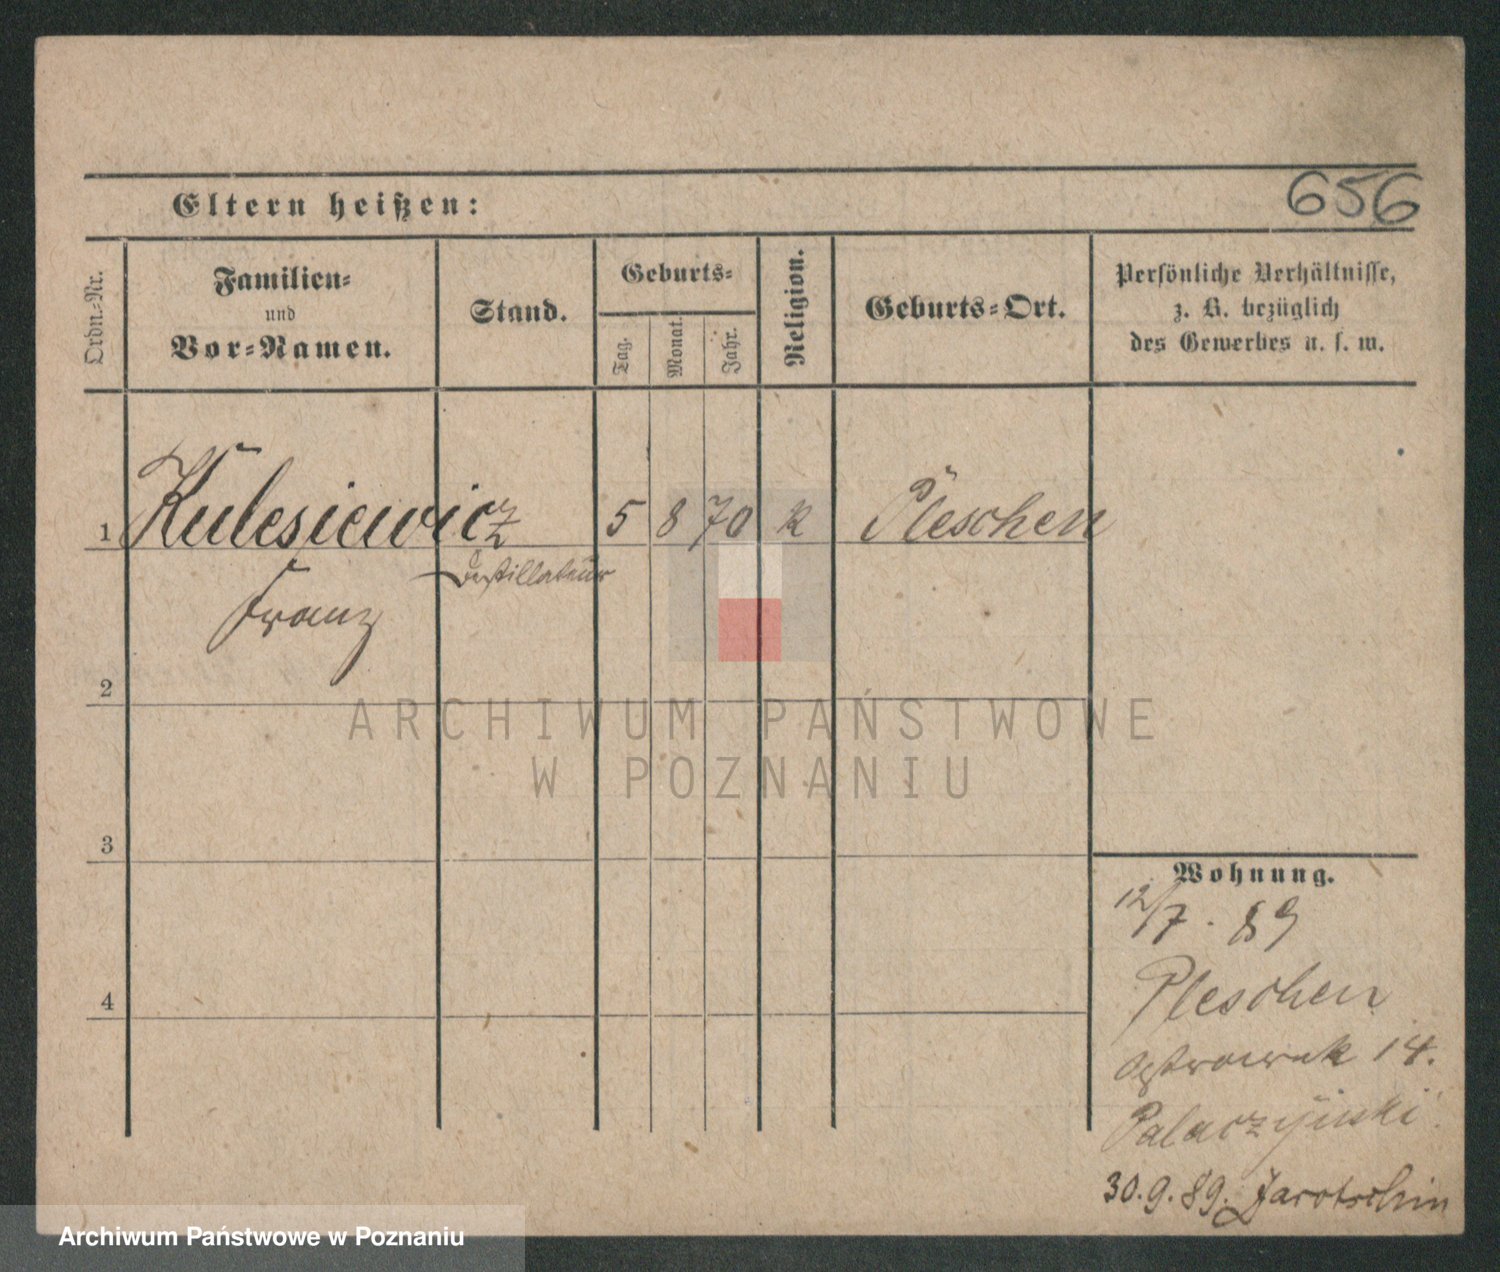 656
Eltern heißen:
Ordn.-Nr.
Familien-
und
Vor-Namen.
Stand.
Geburts-
Tag.
Monat.
Jahr.
Religion.
Geburts-Ort.
Persönliche Verhältnisse,
z. B. bezüglich
des Gewerbes u. s. w.
1 Kulesiewicz 5 8 70 k Pleschen
Destillateur
Franz
2
ARCHIWUM PAŃSTWOWE
W POZNANIU
3
4
Wohnung.
12/7. 89
Pleschen
14.
30.9.89. Jarotschin
Archiwum Państwowe w Poznaniu